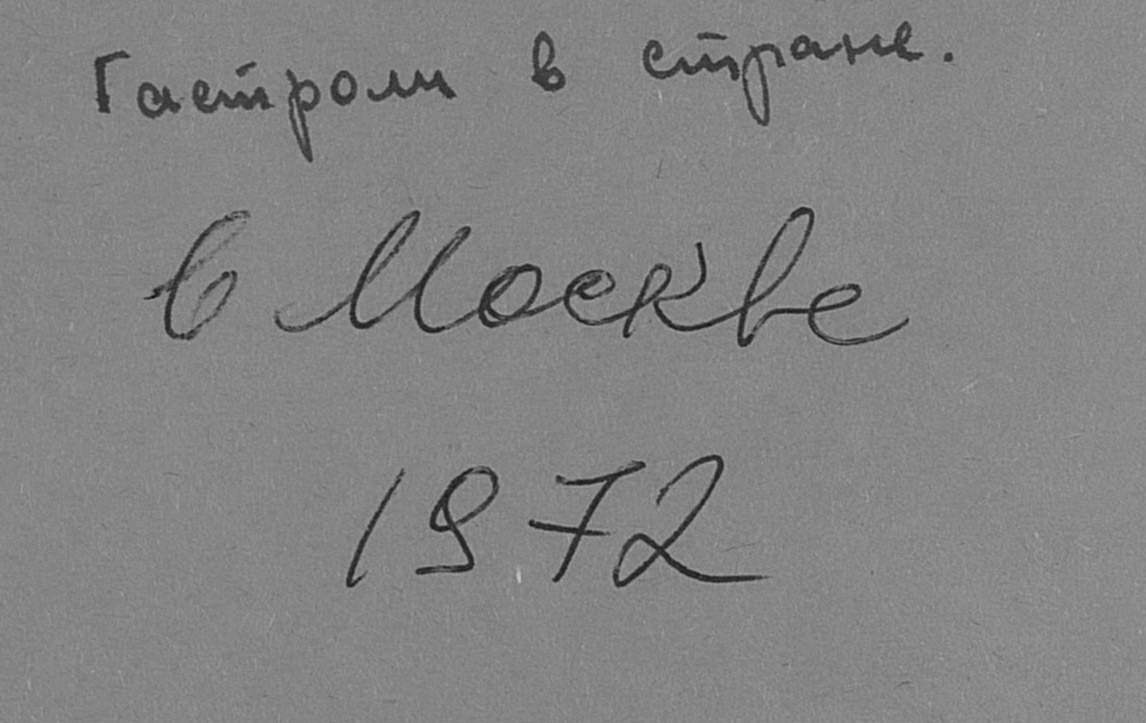 Гастроли в стране.
в Москве
1972